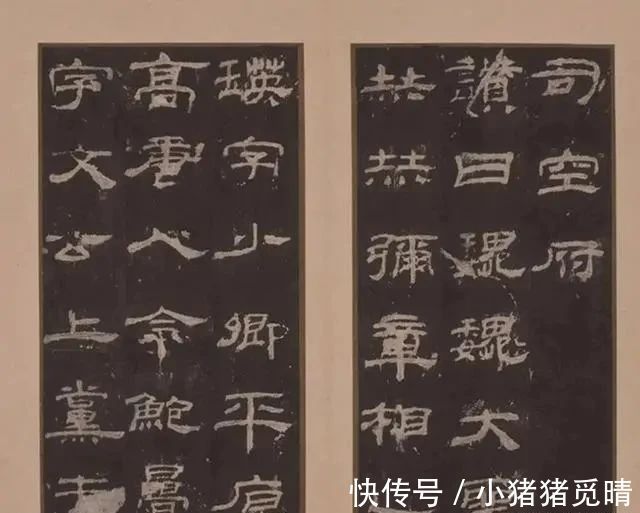 司空府
讚曰巍巍大
赫赫彌章相
瑛字少卿平原
高唐人令鮑疊
字文公上黨屯
快传号 / 小猪猪觅晴